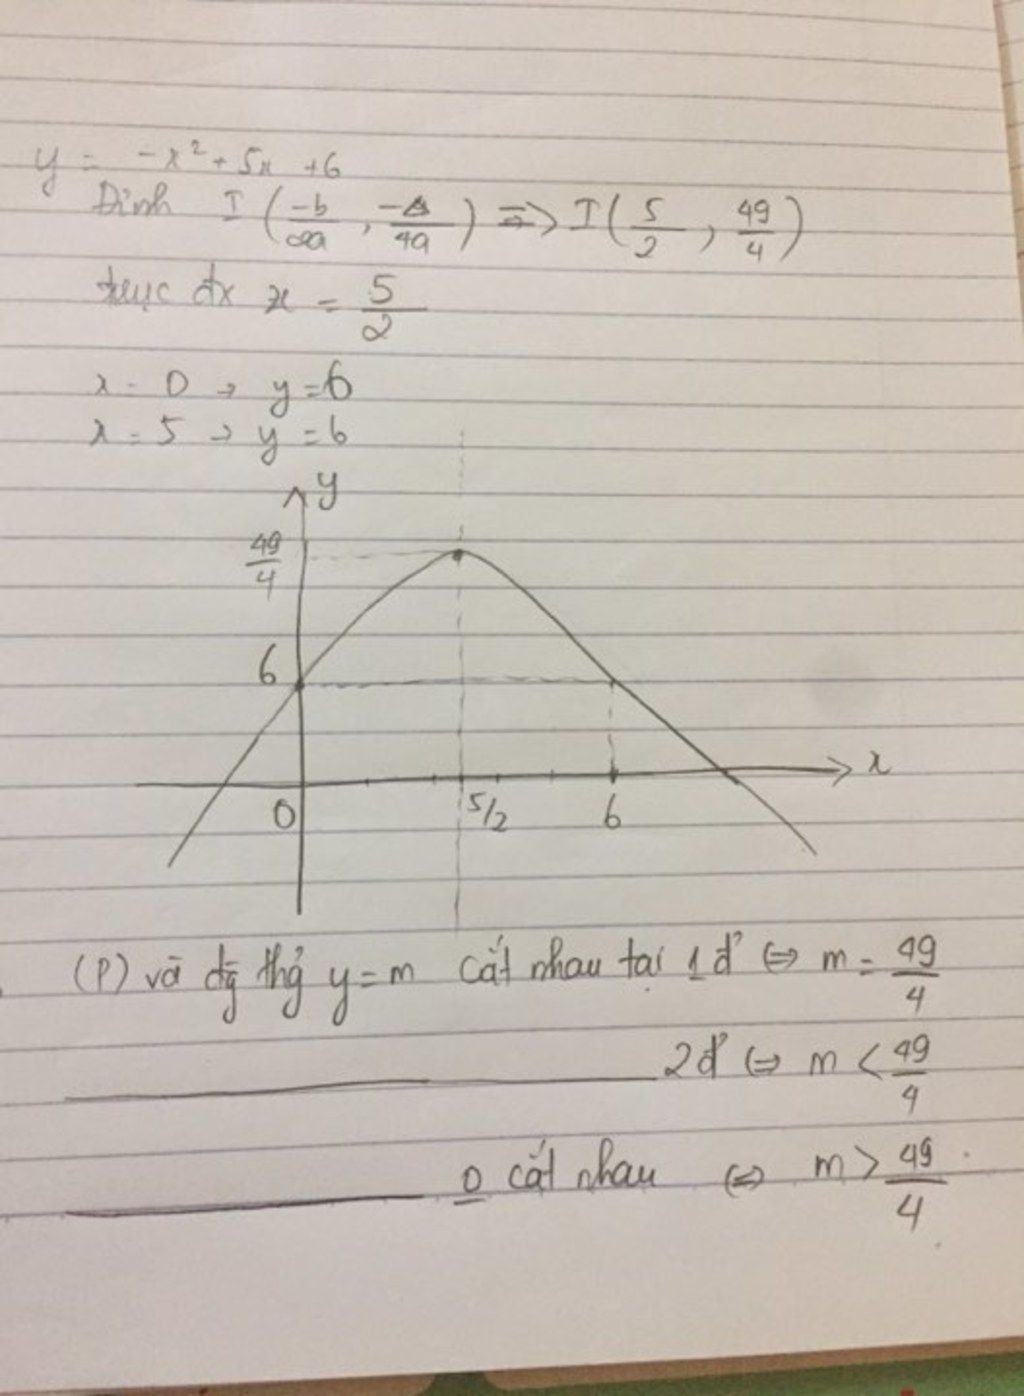 y = -x² + 5x + 6
Đỉnh I (-b/2a, -Δ/4a) => I (5/2, 49/4)
trục đx x = 5/2
x = 0 → y = 6
x = 5 → y = 6
y
49/4
6
x
0 5/2 6
(P) và đg thg y = m cắt nhau tại 1 đ' ⇔ m = 49/4
2 đ' ⇔ m < 49/4
0 cắt nhau ⇔ m > 49/4